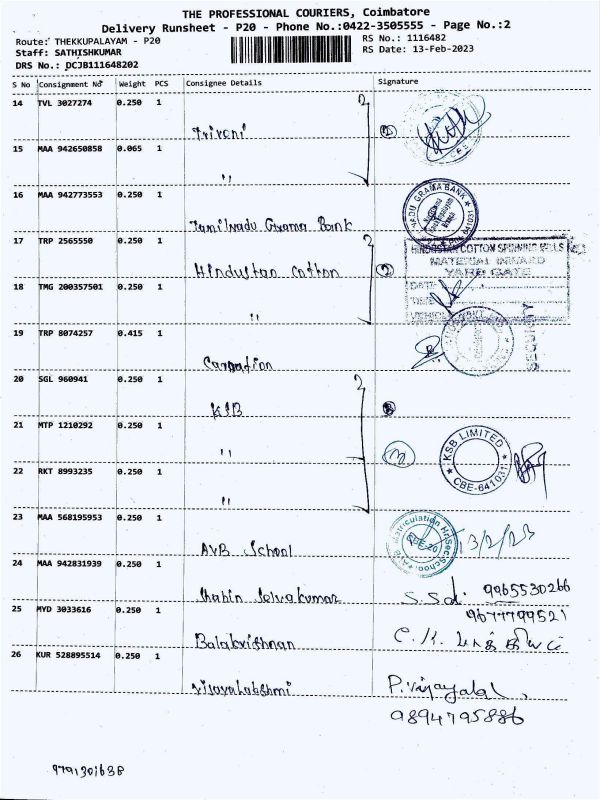 THE PROFESSIONAL COURIERS, Coimbatore
Delivery Runsheet - P20 - Phone No.:0422-3505555 - Page No.:2
Route: THEKKUPALAYAM - P20
RS No.: 1116482
Staff: SATHISHKUMAR
RS Date: 13-Feb-2023
DRS No.: DCJB111648202
S No Consignment No Weight PCS Consignee Details Signature
14 TVL 3027274 0.250 1
Triveni
15 MAA 942650858 0.065 1
"
16 MAA 942773553 0.250 1
Tamilnadu Grama Bank
NADU GRAMA BANK
17 TRP 2565550 0.250 1
Hindustan Cotton
HINDUSTAN COTTON SPINNING MILLS
MATERIAL INWARD
YARD GATE
DATE
TIME
VEHICLE
18 TMG 200357501 0.250 1
"
19 TRP 8074257 0.415 1
SECURITY
20 SGL 960941 0.250 1
KSB
21 MTP 1210292 0.250 1
"
KSB LIMITED
CBE-641031
22 RKT 8993235 0.250 1
"
23 MAA 568195953 0.250 1
AVB School
AVB Matriculation Hr.Sec.School
CBE-20
13/2/23
24 MAA 942831939 0.250 1
Shabin Selvakumar
S.Sd. 9965530266
25 MYD 3033616 0.250 1
9677799521
Balakrishnan
26 KUR 528895514 0.250 1
Vijayalakshmi
P.Vijayalal
9894795886
9791301638